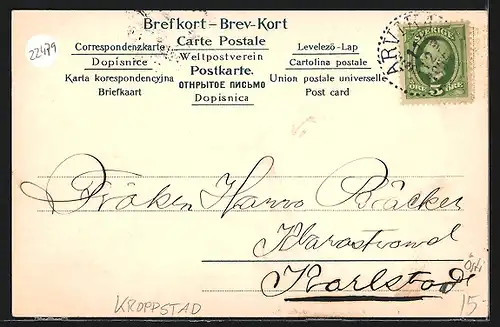 22479
Brefkort – Brev-Kort
Carte Postale
Weltpostverein
Postkarte.
ОТКРЫТОЕ ПИСЬМО
Dopisnica
Correspondenzkarte
Dopisnice
Karta korespondencyjna
Briefkaart
Levelező-Lap
Cartolina postale
Union postale universelle
Post card
SVERIGE
ÖRE 5 ÖRE
Fröken Hanna Bäcker
Klarastrand
Karlstad
KROPPSTAD
15-